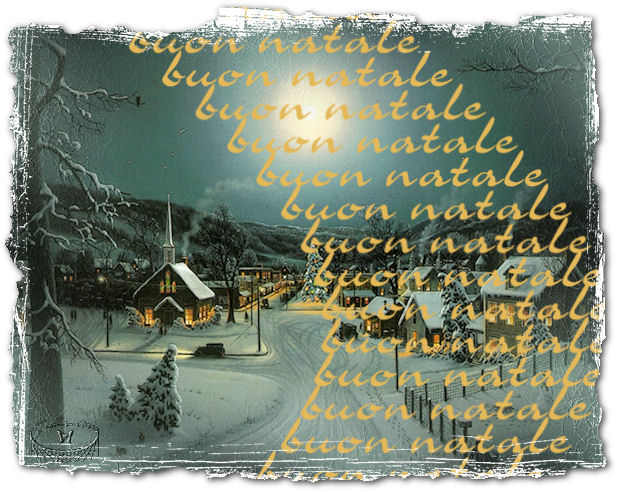 buon natale
buon natale
buon natale
buon natale
buon natale
buon natale
buon natale
buon natale
buon natale
buon natale
buon natale
buon natale
buon natale
buon natale